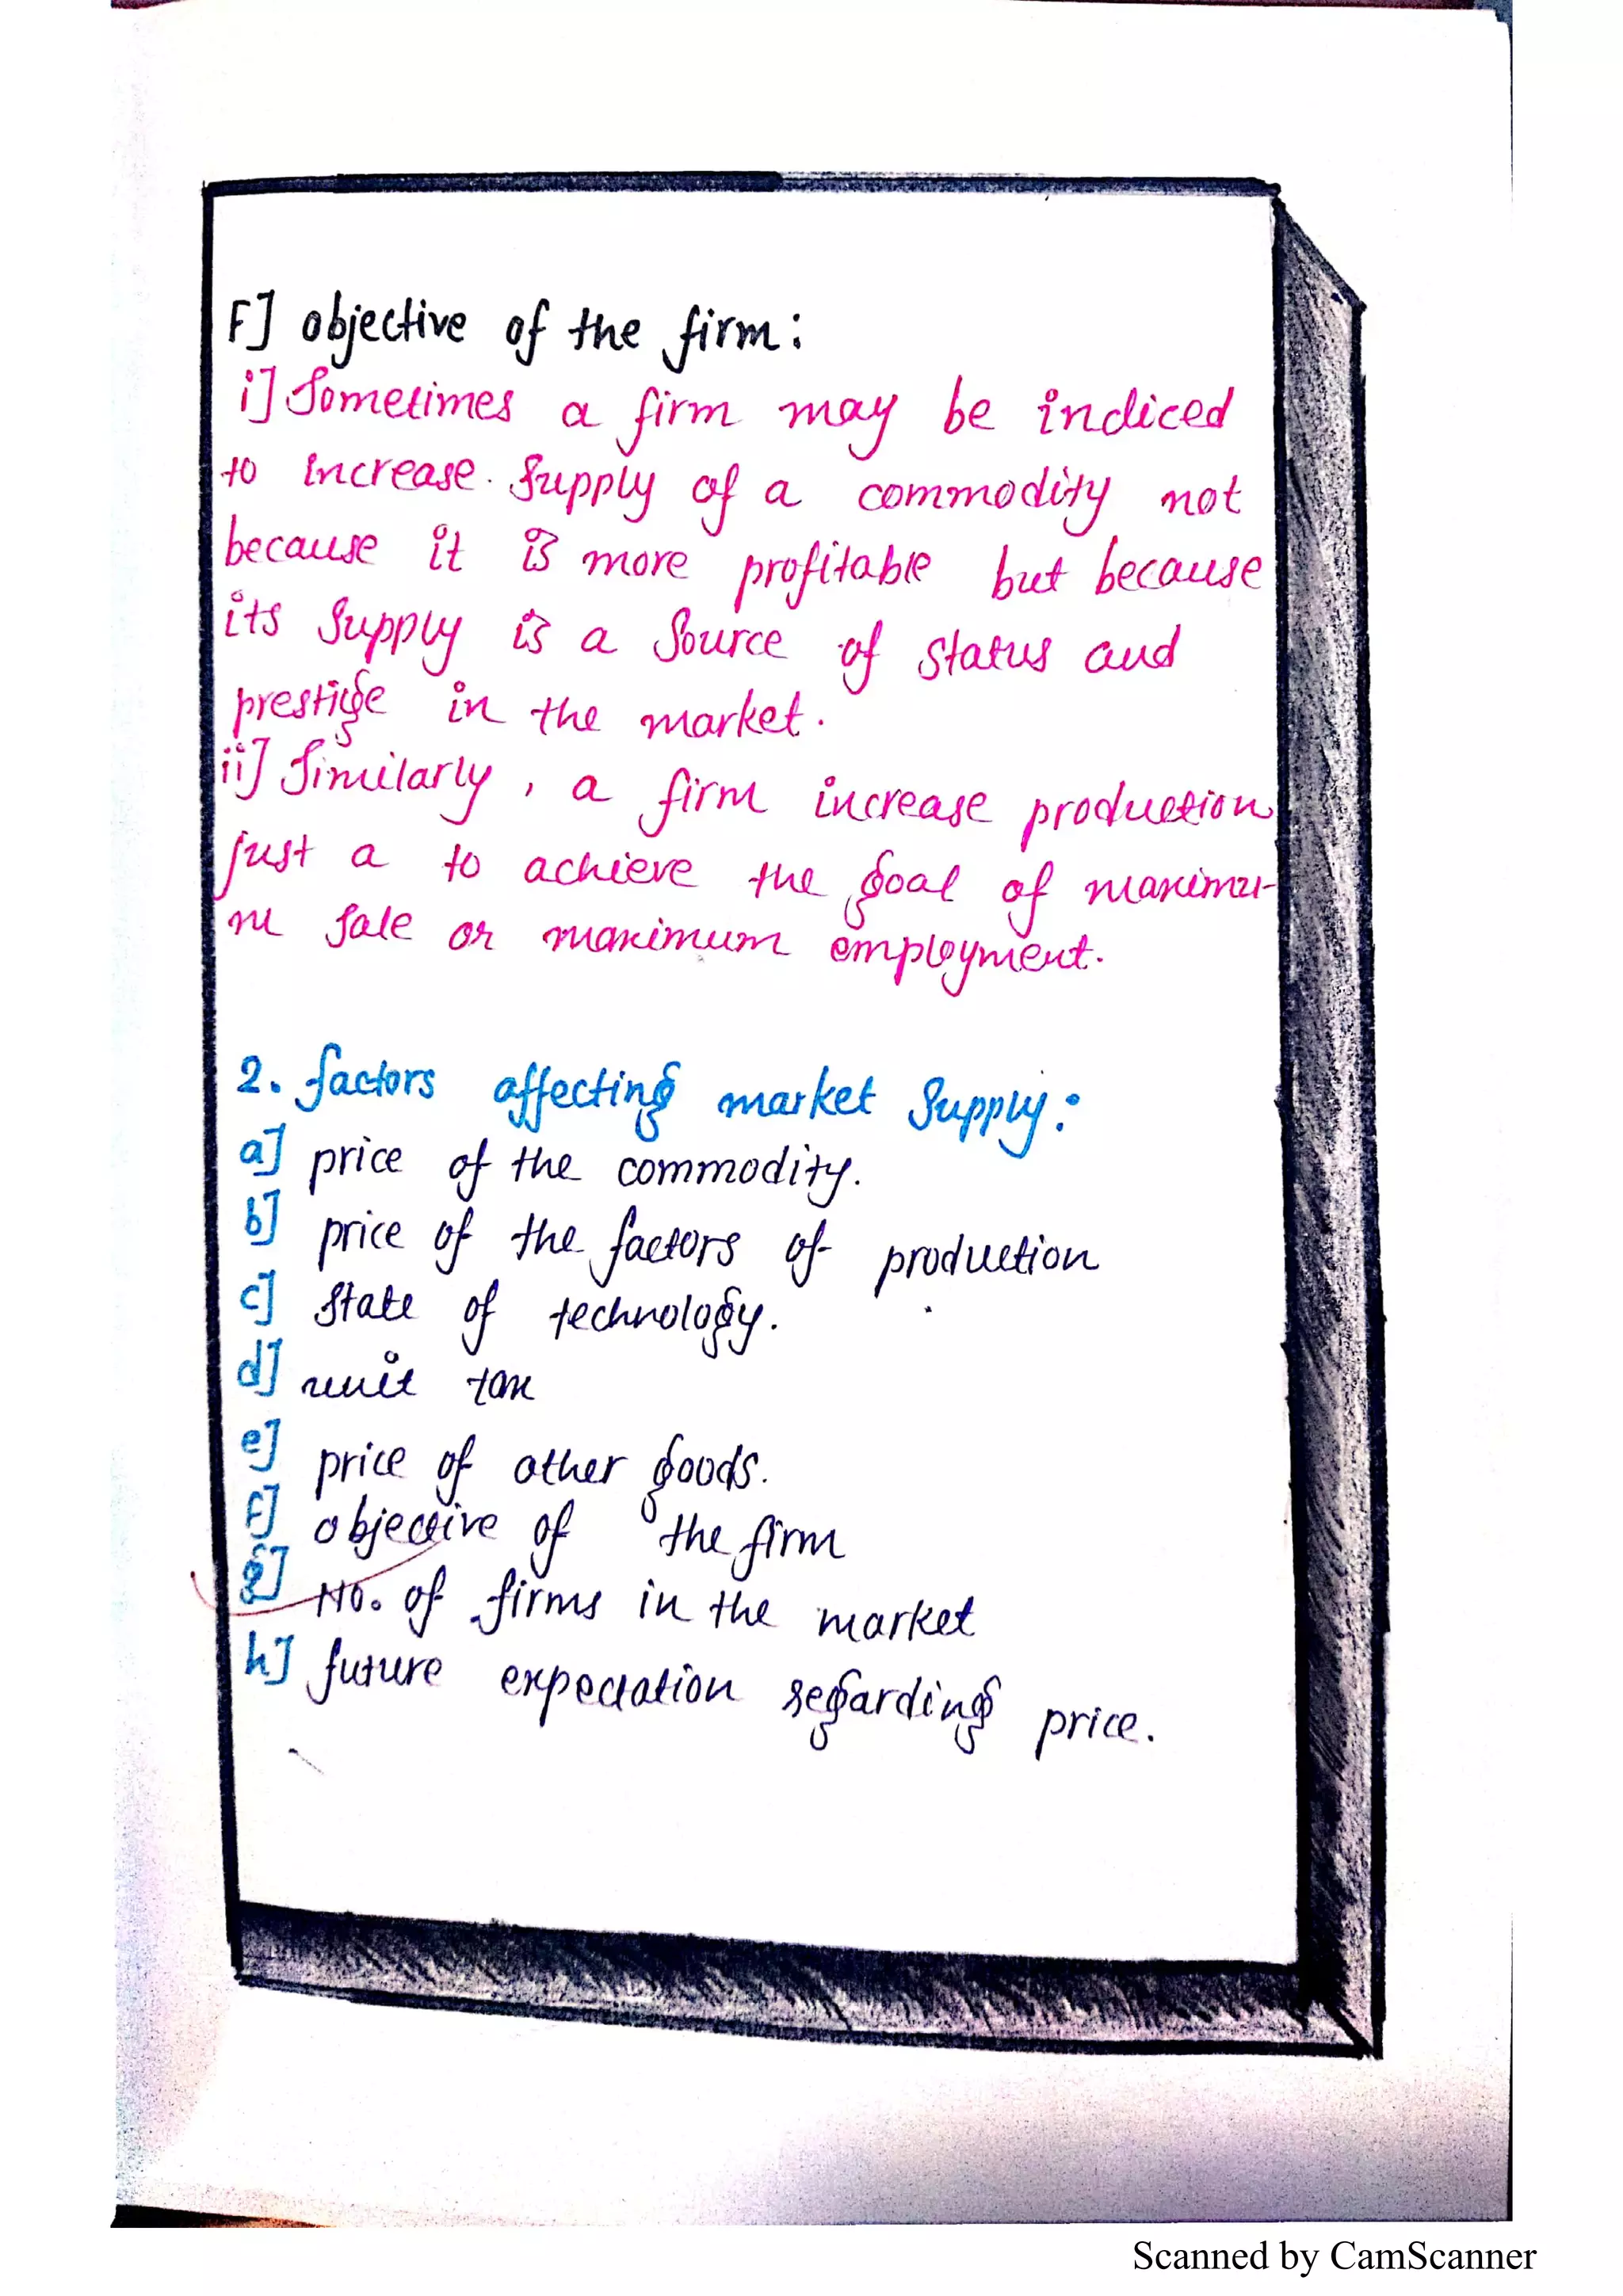 F] objective of the firm:
i] Sometimes a firm may be indiced
to increase supply of a commodity not
because it is more profitable but because
its supply is a source of status and
prestige in the market.
ii] Similarly, a firm increase production
just a to achieve the goal of maximu-
m sale or maximum employment.
2. factors affecting market supply:
a] price of the commodity.
b] price of the factors of production
c] state of technology.
d] unit tax
e] price of other goods.
F] objective of the firm
g] No. of firms in the market
h] future expectation regarding price.
Scanned by CamScanner